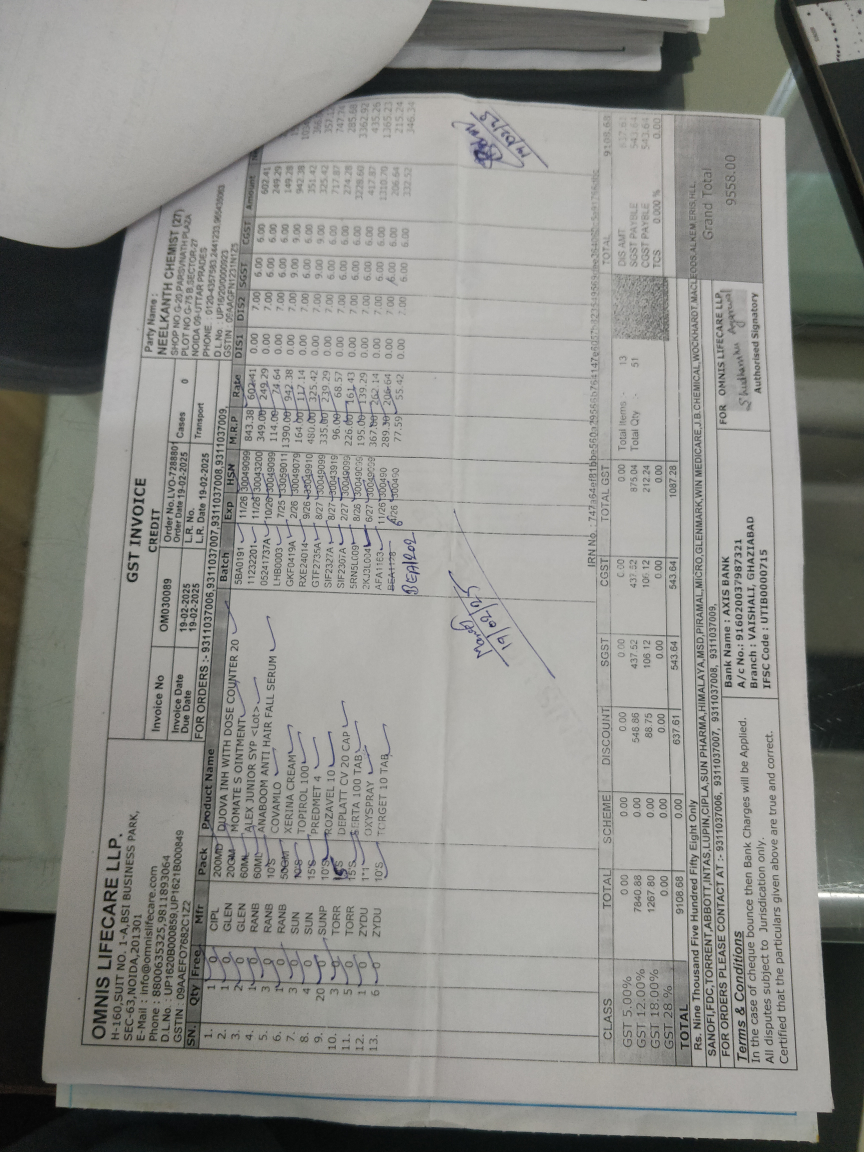 OMNIS LIFECARE LLP.
H-160,SUIT NO. 1-A,BSI BUSINESS PARK,
SEC-63,NOIDA,201301
E-Mail : info@omnislifecare.com
Phone : 8800635325,9811893064
D.L.No : UP1620B000859,UP1621B000849
GSTIN : 09AAEFO7682C1Z2
GST INVOICE
CREDIT
Invoice No OM030089 Order No.LVO-728880
Order Date 19-02-2025
Invoice Date 19-02-2025 L.R. No. Cases 0
Due Date 19-02-2025 L.R. Date 19-02-2025 Transport
FOR ORDERS :- 9311037006,9311037007,9311037008,9311037009,
Party Name :
NEELKANTH CHEMIST (27)
SHOP NO G-20,PARSVNATH PLAZA
PLOT NO G-75 B,SECTOR-27
NOIDA 09-UTTAR PRADES
SN. Qty Free Mfr Pack Product Name Batch Exp HSN M.R.P Rate DIS1 DIS2 SGST CGST Amount
1. 1 0 CIPL 200MD DUOVA INH WITH DOSE COUNTER 20 5BA0191 11/26 30049099 843.38 602.41 0.00 7.00 6.00 6.00 602.41
2. 1 0 GLEN 20GM MOMATE S OINTMENT 11232201 11/26 30043200 349.00 249.29 0.00 7.00 6.00 6.00 249.29
3. 2 0 GLEN 60ML ALEX JUNIOR SYP <Lot> 05241737A 10/26 30049099 114.00 74.64 0.00 7.00 6.00 6.00 149.28
4. 1 0 RANB 60ML ANABOOM ANTI HAIR FALL SERUM LHB0003 7/25 33059011 1390.00 942.38 0.00 7.00 9.00 9.00 942.38
5. 3 0 RANB 10'S COVAMLO GKF0419A 2/26 30049079 164.00 117.14 0.00 7.00 6.00 6.00 351.42
6. 1 0 RANB 50GM XERINA CREAM RXE24014 9/26 480.00 325.42 0.00 7.00 9.00 9.00 325.42
7. 3 0 SUN TOPIROL 100 GTF2735A 8/27 30049099 335.00 239.29 0.00 7.00 6.00 6.00 717.87
8. 4 0 SUN 15'S PREDMET 4 SIF2327A 8/27 30043919 96.00 68.57 0.00 7.00 6.00 6.00 274.28
9. 20 0 SUNP 10'S ROZAVEL 10 SIF2307A 2/27 30049099 226.00 161.43 0.00 7.00 6.00 6.00 3228.60
10. 3 0 TORR 15'S DEPLATT CV 20 CAP 8/26 195.00 139.29 0.00 7.00 6.00 6.00 417.87
11. 5 0 TORR 15'S 100 TAB 6/27 262.14 0.00 7.00 6.00 6.00 1310.70
12. 1 0 ZYDU 1*1 OXYSPRAY AFA1163 11/26 300490 289.30 206.64 0.00 7.00 6.00 6.00 206.64
13. 6 0 ZYDU 10'S TORGET 10 TAB 300490 77.59 55.42 0.00 7.00 6.00 6.00 332.52
BEA1202
19/02/25
CLASS TOTAL SCHEME DISCOUNT SGST CGST TOTAL GST
GST 5.00% 0.00 0.00 0.00 0.00 0.00 0.00
GST 12.00% 7840.88 0.00 548.86 437.52 437.52 875.04
GST 18.00% 1267.80 0.00 88.75 106.12 106.12 212.24
GST 28 % 0.00 0.00 0.00 0.00 0.00 0.00
TOTAL 9108.68 0.00 637.61 543.64 543.64 1087.28
Total Items - 13
Total Qty - 51
TOTAL 9108.68
DIS AMT 637.61
SGST PAYBLE 543.64
CGST PAYBLE 543.64
TCS 0.000 % 0.00
Grand Total
9558.00
Rs. Nine Thousand Five Hundred Fifty Eight Only
SANOFI,FDC,TORRENT,ABBOTT,INTAS,LUPIN,CIPLA,SUN PHARMA,HIMALAYA,MSD,PIRAMAL,MICRO,GLENMARK,WIN MEDICARE,J.B.CHEMICAL,WOCKHARDT,MACLEODS,ALKEM,ERIS,HLL,
FOR ORDERS PLEASE CONTACT AT :- 9311037006, 9311037007, 9311037008, 9311037009,
Terms & Conditions
In the case of cheque bounce then Bank Charges will be Applied.
All disputes subject to Jurisdication only.
Certified that the particulars given above are true and correct.
Bank Name : AXIS BANK
A/c No.: 916020037987321
Branch : VAISHALI, GHAZIABAD
IFSC Code : UTIB0000715
FOR OMNIS LIFECARE LLP
Shudhanshu Agarwal
Authorised Signatory